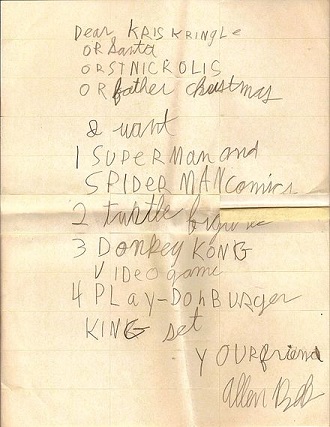 Dear KRIS KRINGLe
OR Santa
OR ST NICKOLIS
OR father christmas
I want
1 SUPERMan and
SPIDERMAN comics
2 turtle
3 DOnkey KONG
VIDEO game
4 PLay-DOhBURger
KING set
YOUR friend
Allen